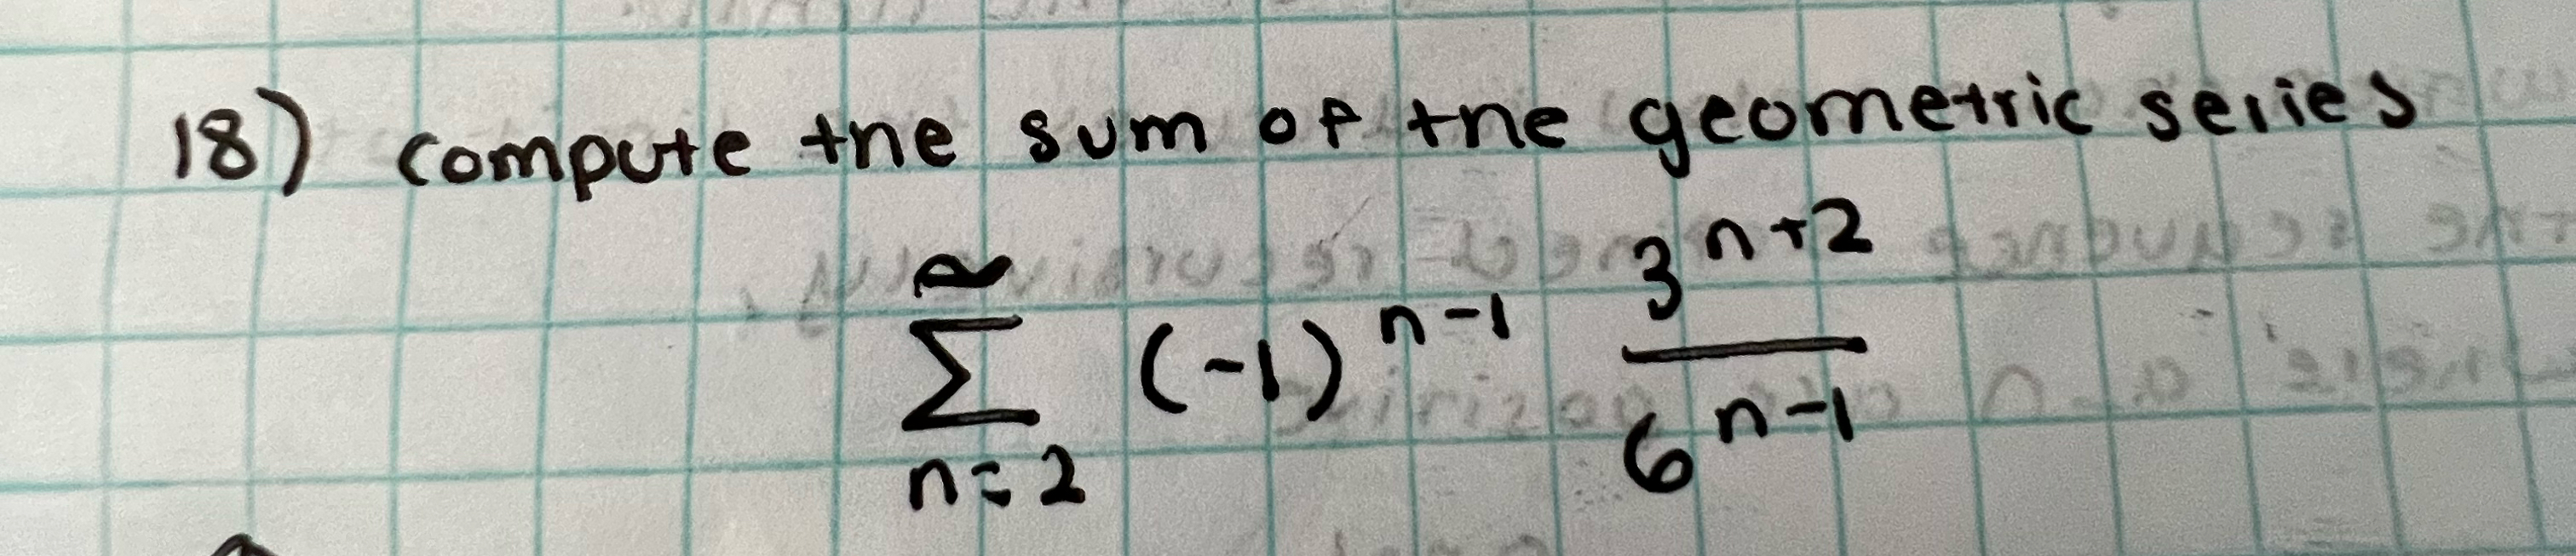 18) compute the sum of the geometric series
∞
∑ (-1)^{n-1} \frac{3^{n+2}}{6^{n-1}}
n=2